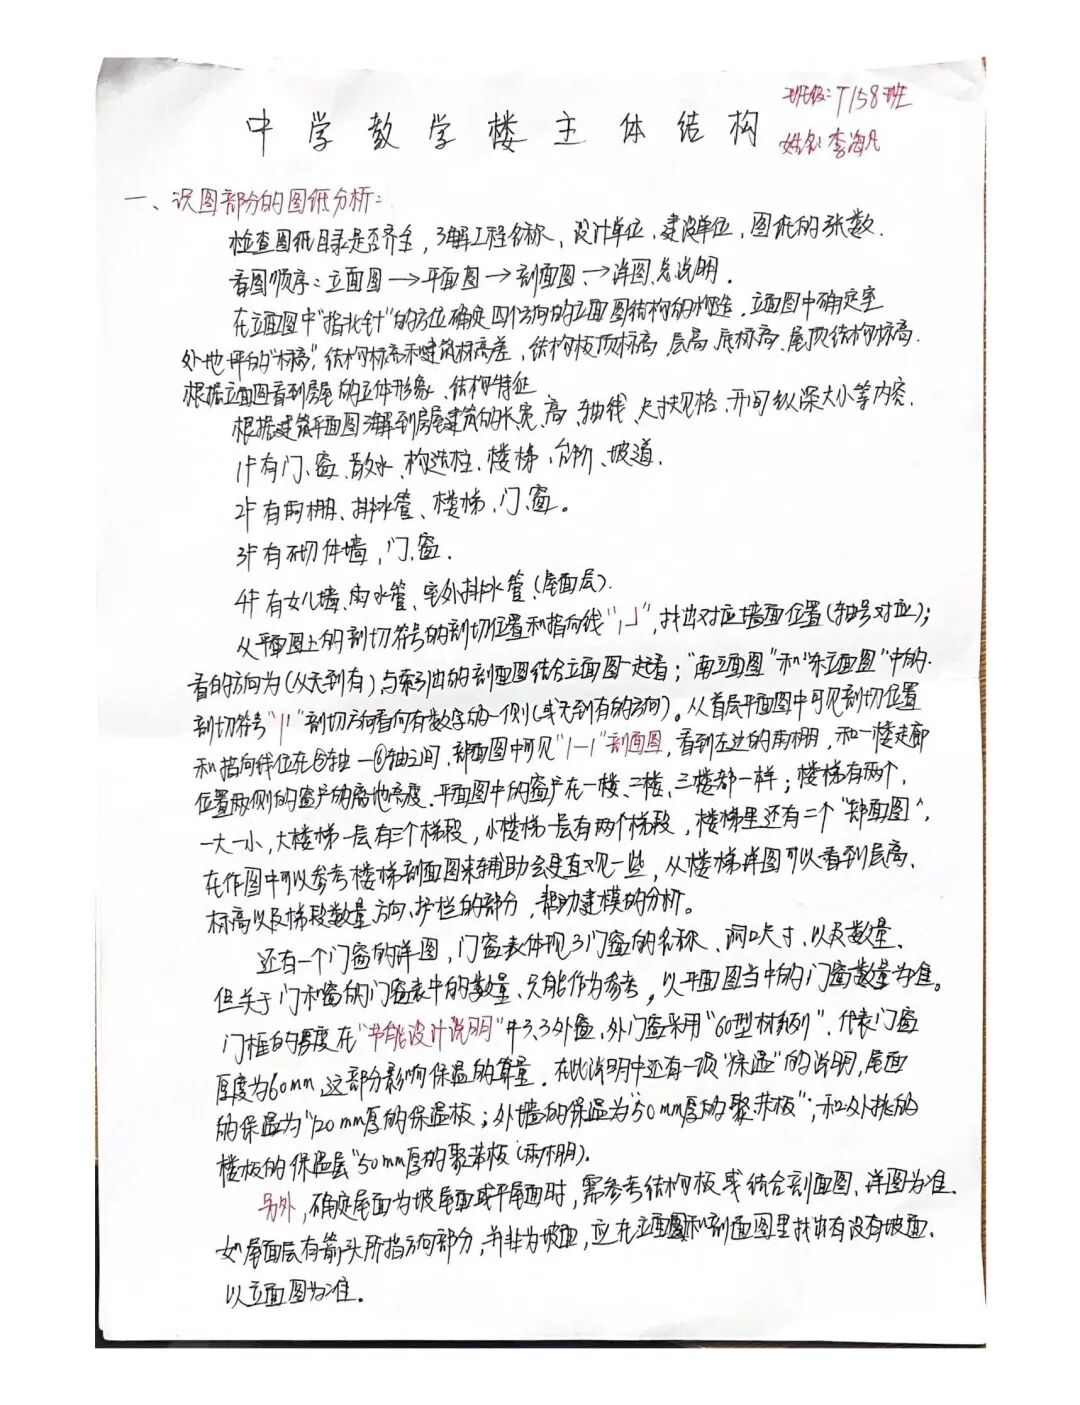 班级:T158班
中学教学楼主体结构
姓名:李海凡
一、识图部分的图纸分析:
检查图纸目录是否齐全,了解工程名称、设计单位、建设单位、图纸的张数.
看图顺序:立面图→平面图→剖面图→详图、总说明.
在立面图中"指北针"的方位确定四个方向的立面图结构的构造.立面图中确定室
外地坪的"标高",结构标高和建筑标高差、结构板顶标高、层高、底标高、屋顶结构标高.
根据立面图看到房屋的立体形象、结构特征
根据建筑平面图了解到房屋建筑的长、宽、高、轴线、尺寸规格、开间纵深大小等内容.
1F有门、窗、散水、构造柱、楼梯、台阶、坡道.
2F有雨棚、排水管、楼梯、门、窗。
3F有砌体墙,门、窗.
4F有女儿墙、雨水管、室外排水管(屋面层).
从平面图上的剖切符号的剖切位置和指向线"1」",找出对应墙面位置(轴号对应);
看的方向为(从左到右)与索引出的剖面图结合立面图一起看;"南立面图"和"东立面图"中的.
剖切符号"1'"剖切方向看向有数字的一侧(或左到右的方向)。从首层平面图中可见剖切位置
和指向线位在⑤轴—⑥轴之间,剖面图中可见"1—1"剖面图,看到左边的雨棚,和一楼走廊
位置两侧的窗户的离地高度.平面图中的窗户在一楼、二楼、三楼都一样;楼梯有两个,
一大一小,大楼梯一层有三个梯段,小楼梯一层有两个梯段,楼梯里还有二个"剖面图",
在作图中可以参考楼梯剖面图来辅助会更直观一些,从楼梯详图可以看到层高、
标高以及梯段数量、方向、护栏的部分,帮助建模的分析。
还有一个门窗的详图,门窗表体现了门窗的名称、洞口尺寸、以及数量、
但关于门和窗的门窗表中的数量、只能作为参考,以平面图当中的门窗数量为准。
门框的厚度在"节能设计说明"中3.3外窗,外门窗采用"60型材系列".代表门窗
厚度为60mm,这部分影响保温的算量.在此说明中还有一项"保温"的说明,屋面
的保温为"120mm厚的保温板;外墙的保温为"50mm厚的聚苯板";和外挑的
楼板的保温层"50mm厚的聚苯板(雨棚).
另外,确定屋面为坡屋面或平屋面时,需参考结构板或结合剖面图、详图为准.
如屋面层有箭头所指方向部分,并非为坡面,应在立面图和剖面图里找出有没有坡面、
以立面图为准.